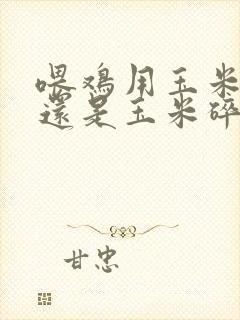 喂鸡用玉米
还是玉米碎
甘忠